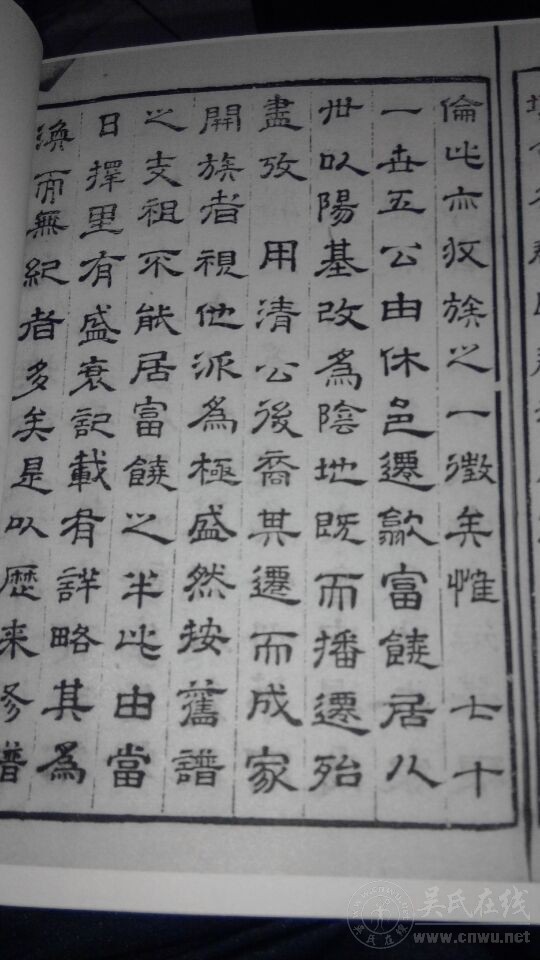 倫此亦收族之一徵矣惟 七十
一世五公由休邑遷歙富饒居八
世以陽基改為陰地既而播遷殆
盡攷 用清公後裔其遷而成家
開族者視他派為極盛然按舊譜
之支祖不能居富饒之半此由當
日擇里有盛衰記載有詳略其為
渙而無紀者多矣是以歷来修譜
吴氏在线
www.cnwu.net